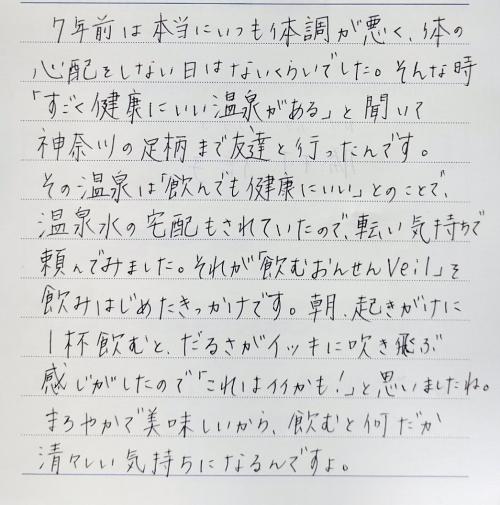 7年前は本当にいつも体調が悪く、体の
心配をしない日はないくらいでした。そんな時
「すごく健康にいい温泉がある」と聞いて
神奈川の足柄まで友達と行ったんです。
その温泉は「飲んでも健康にいい」とのことで、
温泉水の宅配もされていたので、転い気持ちで
頼んでみました。それが「飲むおんせんVeil」を
飲みはじめたきっかけです。朝、起きがけに
1杯飲むと、だるさがイッキに吹き飛ぶ
感じがしたので「これはイイかも!」と思いましたね。
まろやかで美味しいから、飲むと何だか
清々しい気持ちになるんですよ。